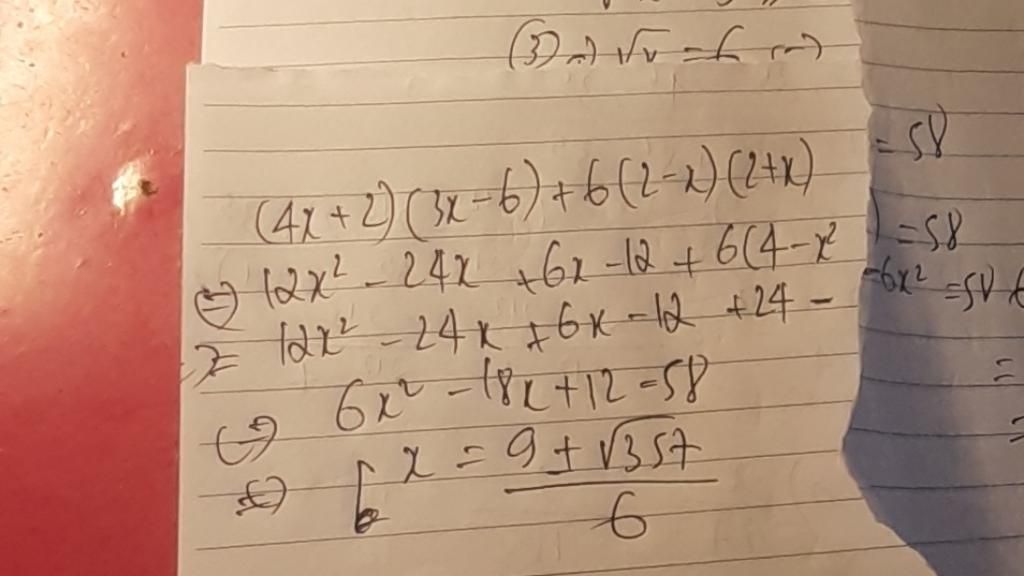 (3) => √v = 6
(4x+2)(3x-6)+6(2-x)(2+x) = 58
(=) 12x² - 24x +6x -12 + 6(4-x²) = 58
12x² - 24x + 6x - 12 +24 - 6x² = 58
(=) 6x² - 18x + 12 = 58
x = 9 ± √357 / 6